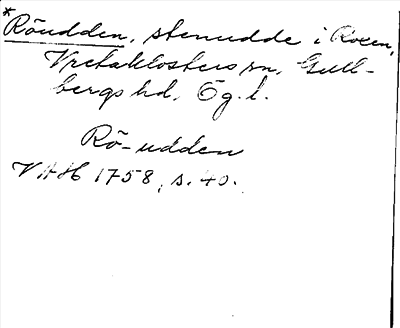 *Röudden, stenudde i Roxen,
Vretaklosters sn, Gull-
bergs hd, Ög. l.
Rö-udden
VAH 1758, s. 40.